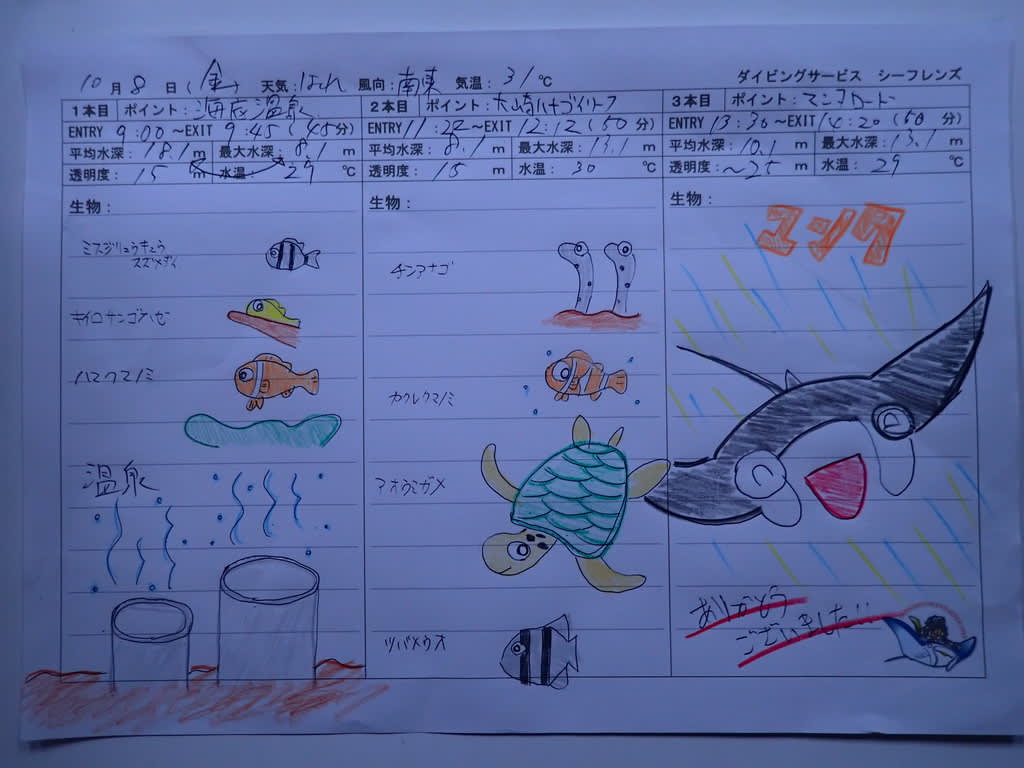 10月8日(金) 天気:はれ 風向:南東 気温:31℃
ダイビングサービス シーフレンズ
1本目 ポイント:海底温泉
ENTRY 9:00～EXIT 9:45(45分)
平均水深:18.1m 最大水深:8.1m
透明度:15m 水温:29℃
生物:
ミスジリュウキュウ
スズメダイ
キイロサンゴハゼ
ハマクマノミ
温泉
2本目 ポイント:大崎ハナゴイリーフ
ENTRY 11:22～EXIT 12:12(50分)
平均水深:8.1m 最大水深:13.1m
透明度:15m 水温:30℃
生物:
チンアナゴ
カクレクマノミ
アオウミガメ
ツバメウオ
3本目 ポイント:マンタロード
ENTRY 13:30～EXIT 14:20(50分)
平均水深:10.1m 最大水深:13.1m
透明度:～25m 水温:29℃
生物:
ありがとう
ございました!!